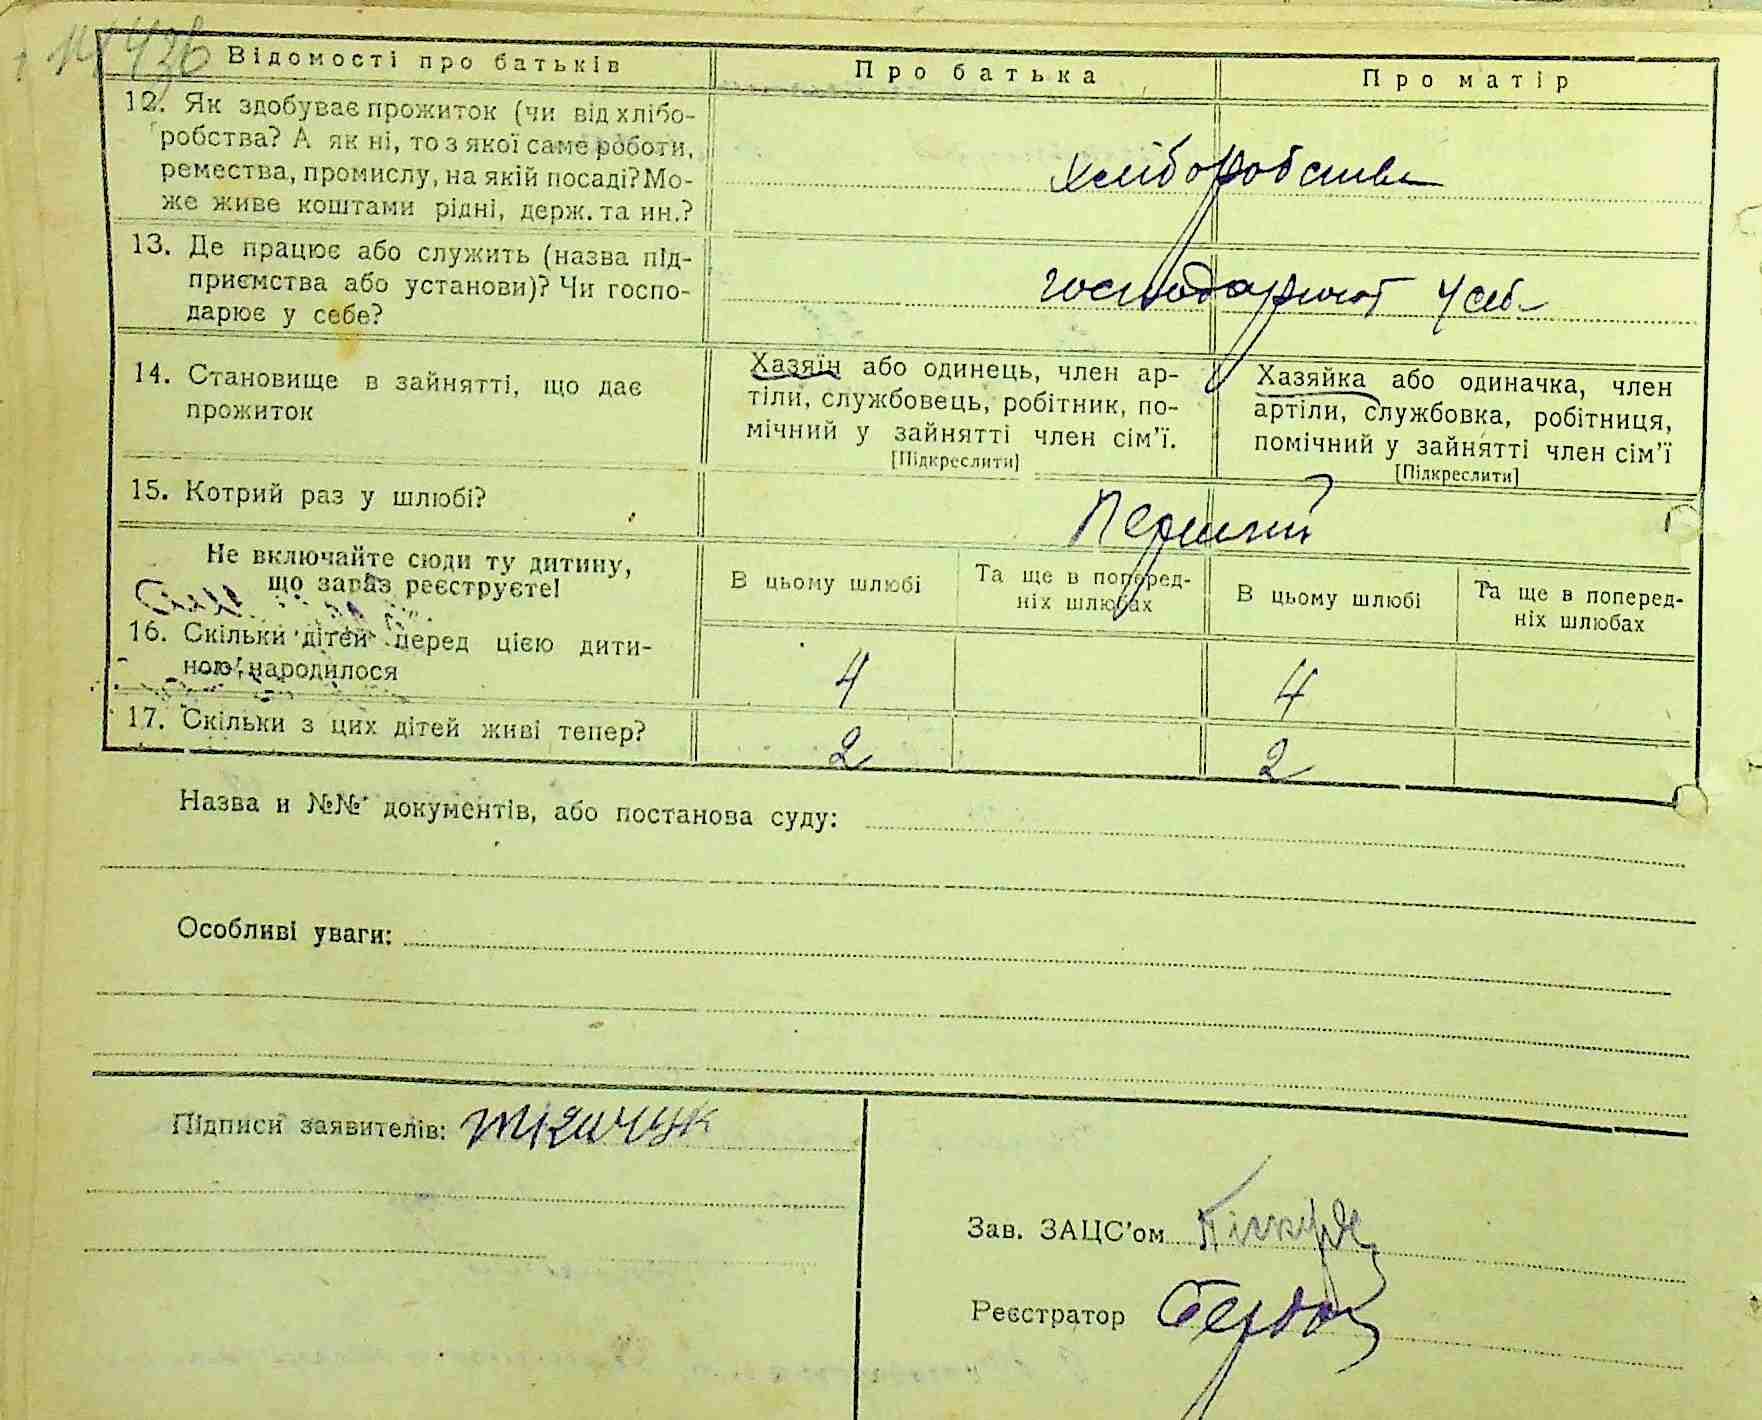 № 426
Відомості про батьків Про батька Про матір
12. Як здобуває прожиток (чи від хлібо-
робства? А як ні, то з якої саме роботи,
ремества, промислу, на якій посаді? Мо-
же живе коштами рідні, держ. та ин.?
хліборобства
13. Де працює або служить (назва під-
приємства або установи)? Чи госпо-
дарює у себе?
господарюют у себе
14. Становище в зайнятті, що дає
прожиток
Хазяїн або одинець, член ар-
тіли, службовець, робітник, по-
мічний у зайнятті член сім'ї.
[Підкреслити]
Хазяйка або одиначка, член
артіли, службовка, робітниця,
помічний у зайнятті член сім'ї
[Підкреслити]
15. Котрий раз у шлюбі? Перший
Не включайте сюди ту дитину,
що зараз реєструєте!
В цьому шлюбі
Та ще в поперед-
ніх шлюбах
В цьому шлюбі
Та ще в поперед-
ніх шлюбах
16. Скільки дітей перед цією дити-
ною народилося 4 4
17. Скільки з цих дітей живі тепер? 2 2
Назва и №№ документів, або постанова суду:
Особливі уваги:
Підписи заявителів: Ткачук
Зав. ЗАЦС'ом
Реєстратор